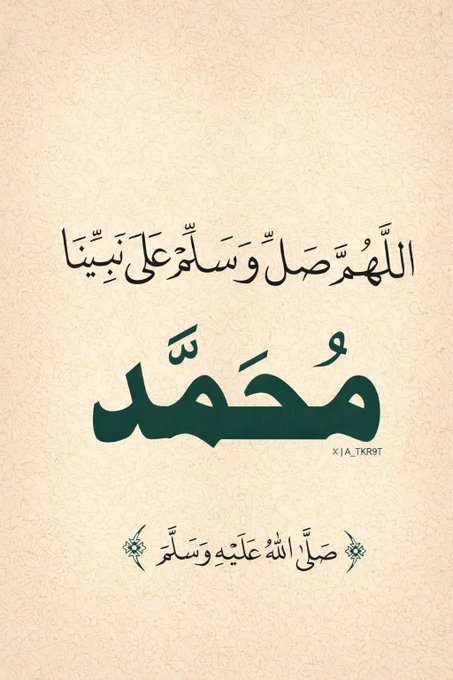 اللَّهُمَّ صَلِّ وَسَلِّمْ عَلَىٰ نَبِيِّنَا
مُحَمَّد
X | A_TKR9T
صَلَّى اللهُ عَلَيْهِ وَسَلَّمَ